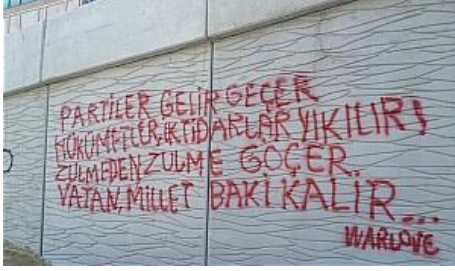 PARTİLER GELİR GEÇER
HÜKÜMETLER, İKTİDARLAR YIKILIR!
ZULMEDEN ZULME GÖÇER.
VATAN, MİLLET BAKİ KALIR...
WARLOVE